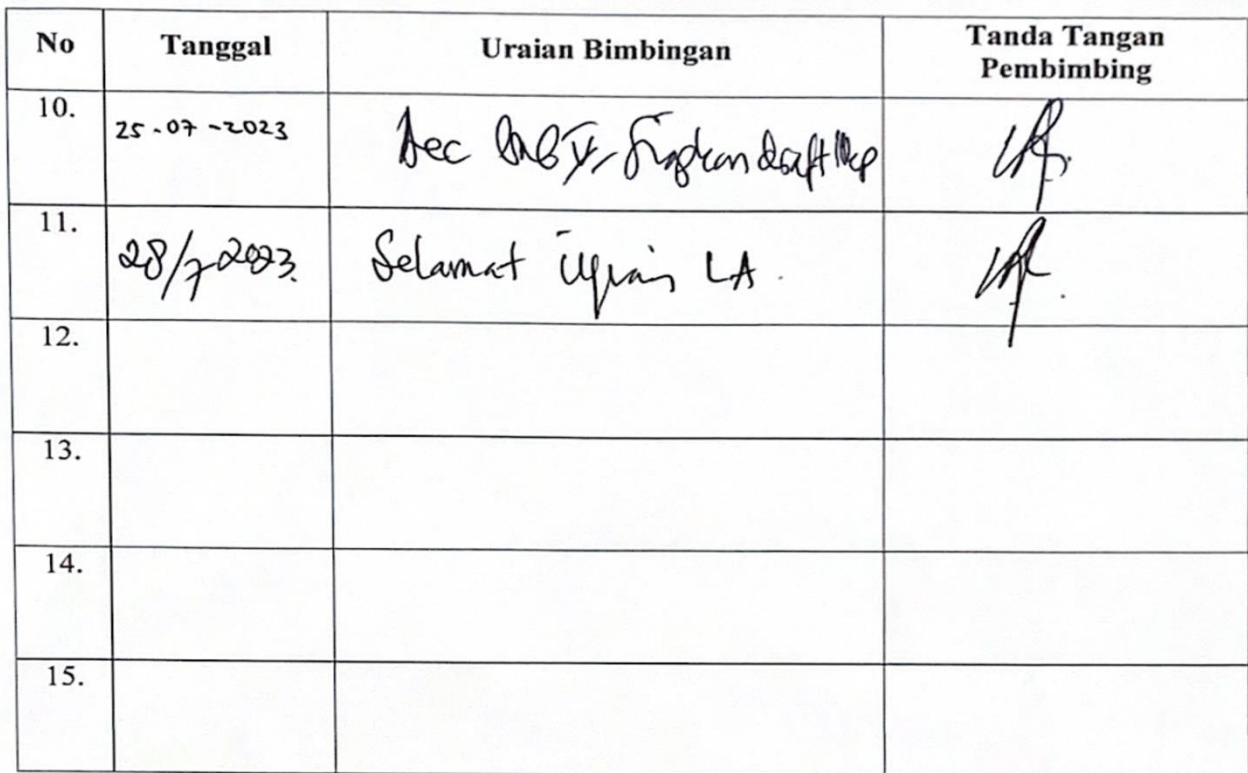 No Tanggal Uraian Bimbingan Tanda Tangan
Pembimbing
10. 25-07-2023 Acc BAB V, draft
11. 28/7 2023. Selamat Ujian LA.
12.
13.
14.
15.